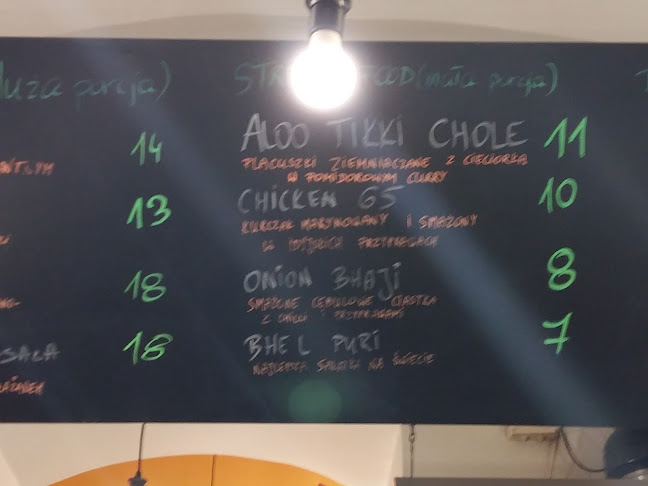 duża porcja)
14
13
18
18
STREET FOOD (mała porcja)
ALOO TIKKI CHOLE 11
PLACUSZKI ZIEMNIACZANE Z CIECIORKĄ
W POMIDOROWYM CURRY
CHICKEN 65 10
KURCZAK MARYNOWANY I SMAŻONY
W INDYJSKICH PRZYPRAWACH
ONION BHAJI 8
SMAŻONE CEBULOWE CIASTKA
Z CHILLI I PRZYPRAWAMI
BHEL PURI 7
NAJLEPSZA SAŁATKA NA ŚWIECIE